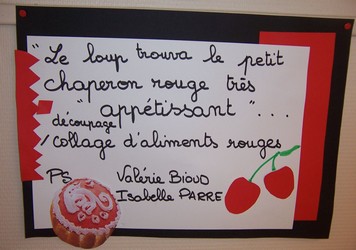 "Le loup trouva le petit
chaperon rouge très
"appétissant"...
découpage
/collage d'aliments rouges
PS Valérie BIOUD
Isabelle PARRE